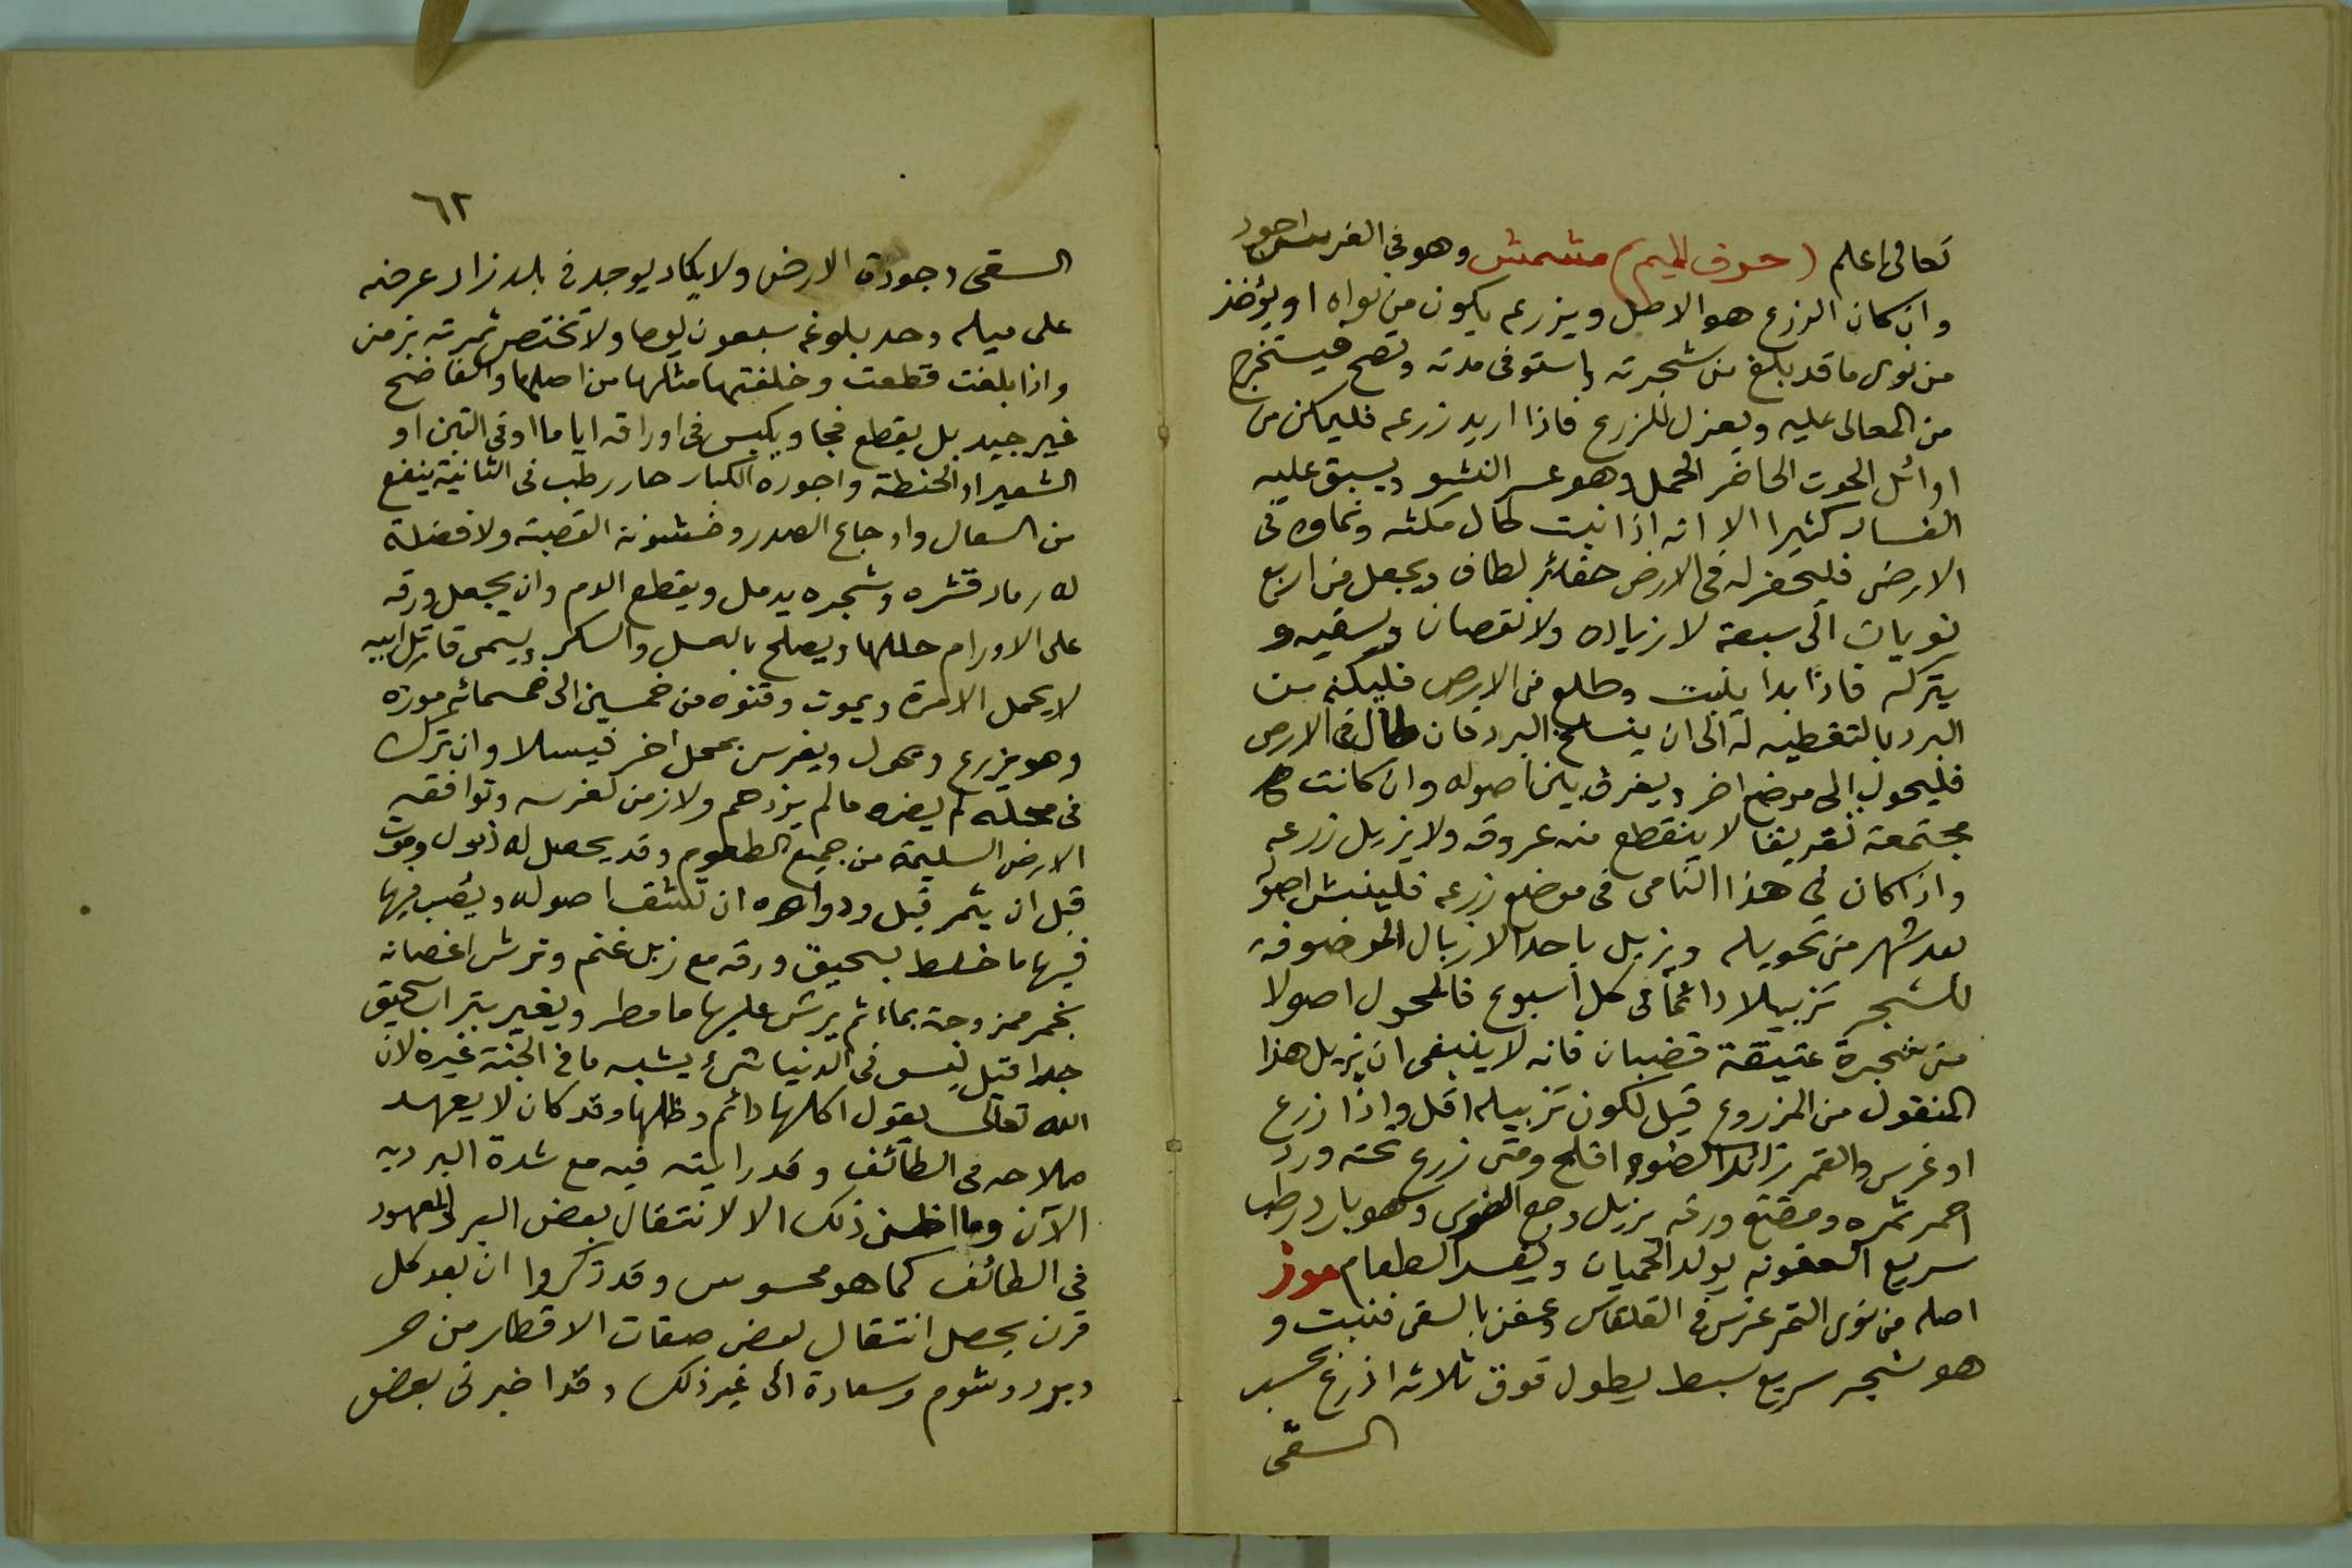 تعالى اعلم (حرف الميم) مشمش وهو في الغرس اجود
وان كان الزرع هو الاصل ويزرعه يكون من نواه او يؤخذ
من نوى ما قد بلغ من شجرته واستوفى مدته ونضج فيستخرج
من المعالى عليه ويعزل للزرع فاذا اريد زرعه فليمكن من
اوائل الحوت الحاضر الحمل وهو عسر النشو ويسبق عليه
الفساد كثيرا الا انه اذا نبت طال مكثه ونماوه في
الارض فليحفر له في الارض حفائر لطاف ويجعل من اربع
نويات الى سبعة لا زياده ولا نقصان ويسقيه و
يتركه فاذا بدا ينبت وطلع من الارض فليكنه من
البرد بالتغطيه له الى ان ينسلخ البرد فان طال في الارض
فليحول الى موضع اخر ويفرق بين اصوله وان كانت
مجتمعة تفريقا لا ينقطع منه عروقه ولا يزبل زرعه
واذا كان في هذا النامى في موضع زرعه فلينبش اصو
بعد شهر من تحويله ويزبل باحد الازبال الموصوفه
للشجر تزبيلا دائما في كل اسبوع فالمحول اصولا
من شجرة عتيقة قضبان فانه لا ينبغى ان يزبل هذا
المنقول من المزروع قيل لكون تزبيله اقل واذا زرع
او غرس والقمر زائد الضوء افلح ومتى زرع تحته ورد
احمر ثمره ومضغ ورقه يزيل وجع الضرس وهو بارد رطب
سريع العفونه يولد الحميات ويفسد الطعام موز
اصله من نوى التمر غرس في القلقاس وعفن بالسقى فنبت و
هو شجر سريع سبط يطول فوق ثلاثه اذرع بحسب
السقى
٦٢
السقى وجودة الارض ولا يكاد يوجد في بلد زاد عرضه
على ميله وحد بلوغه سبعون يوما ولا تختص ثمرته بزمن
واذا بلغت قطعت وخلفتها مثلها من اصلها والفاضح
غير جيد بل يقطع فجا ويكبس في اوراقه اياما او في التبن او
الشعير او الحنطة واجوده الكبار حار رطب في الثانية ينفع
من السعال واوجاع الصدر وخشونة القصبة ولا فضلة
له رماد قشره وشجره يدمل ويقطع الدم وان يجعل ورقه
على الاورام حللها ويصلح بالعسل والسكر ويسمى قاتل ابيه
لا يحمل الا مرة ويموت وقنوه من خمسين الى خمسمائة موزه
وهو يزرع ويحول ويغرس بمحل اخر فيسلا وان ترك
في محله لم يضره ما لم يزدحم ولا زمن لغرسه وتوافقه
الارض السليمة من جميع الطعوم وقد يحصل له ذبول وموت
قبل ان يثمر قيل ودواه ان تكشف اصوله ويصب فيها
فيها ما خلط بسحيق ورقه مع زبل غنم وترش اغصانه
بخمر ممزوجة بماء ثم يرش عليها ما مطر ويغير بتراب سحيق
جدا قيل ليس في الدنيا شئ يشبه ما في الجنة غيره لان
الله تعالى يقول اكلها دائم وظلها وقد كان لا يعهد
صلاحه في الطائف وقد رايته فيه مع شدة البرد به
الآن وما اظن ذلك الا لانتقال بعض البرد المعهود
في الطائف كما هو محسوس وقد ذكروا ان بعد كل
قرن يحصل انتقال بعض صفات الاقطار من حر
وبرد وشوم وسعادة الى غير ذلك وقد اخبرنى بعض